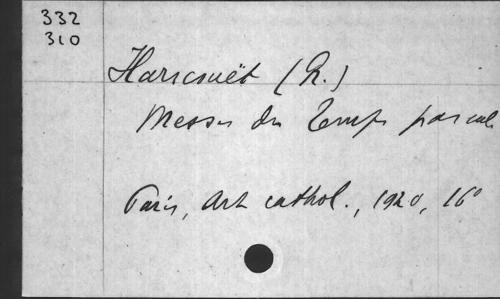 332
310
Harscouët (R.)
Messes du Temps pascal
Paris, Art cathol., 1920, 16°